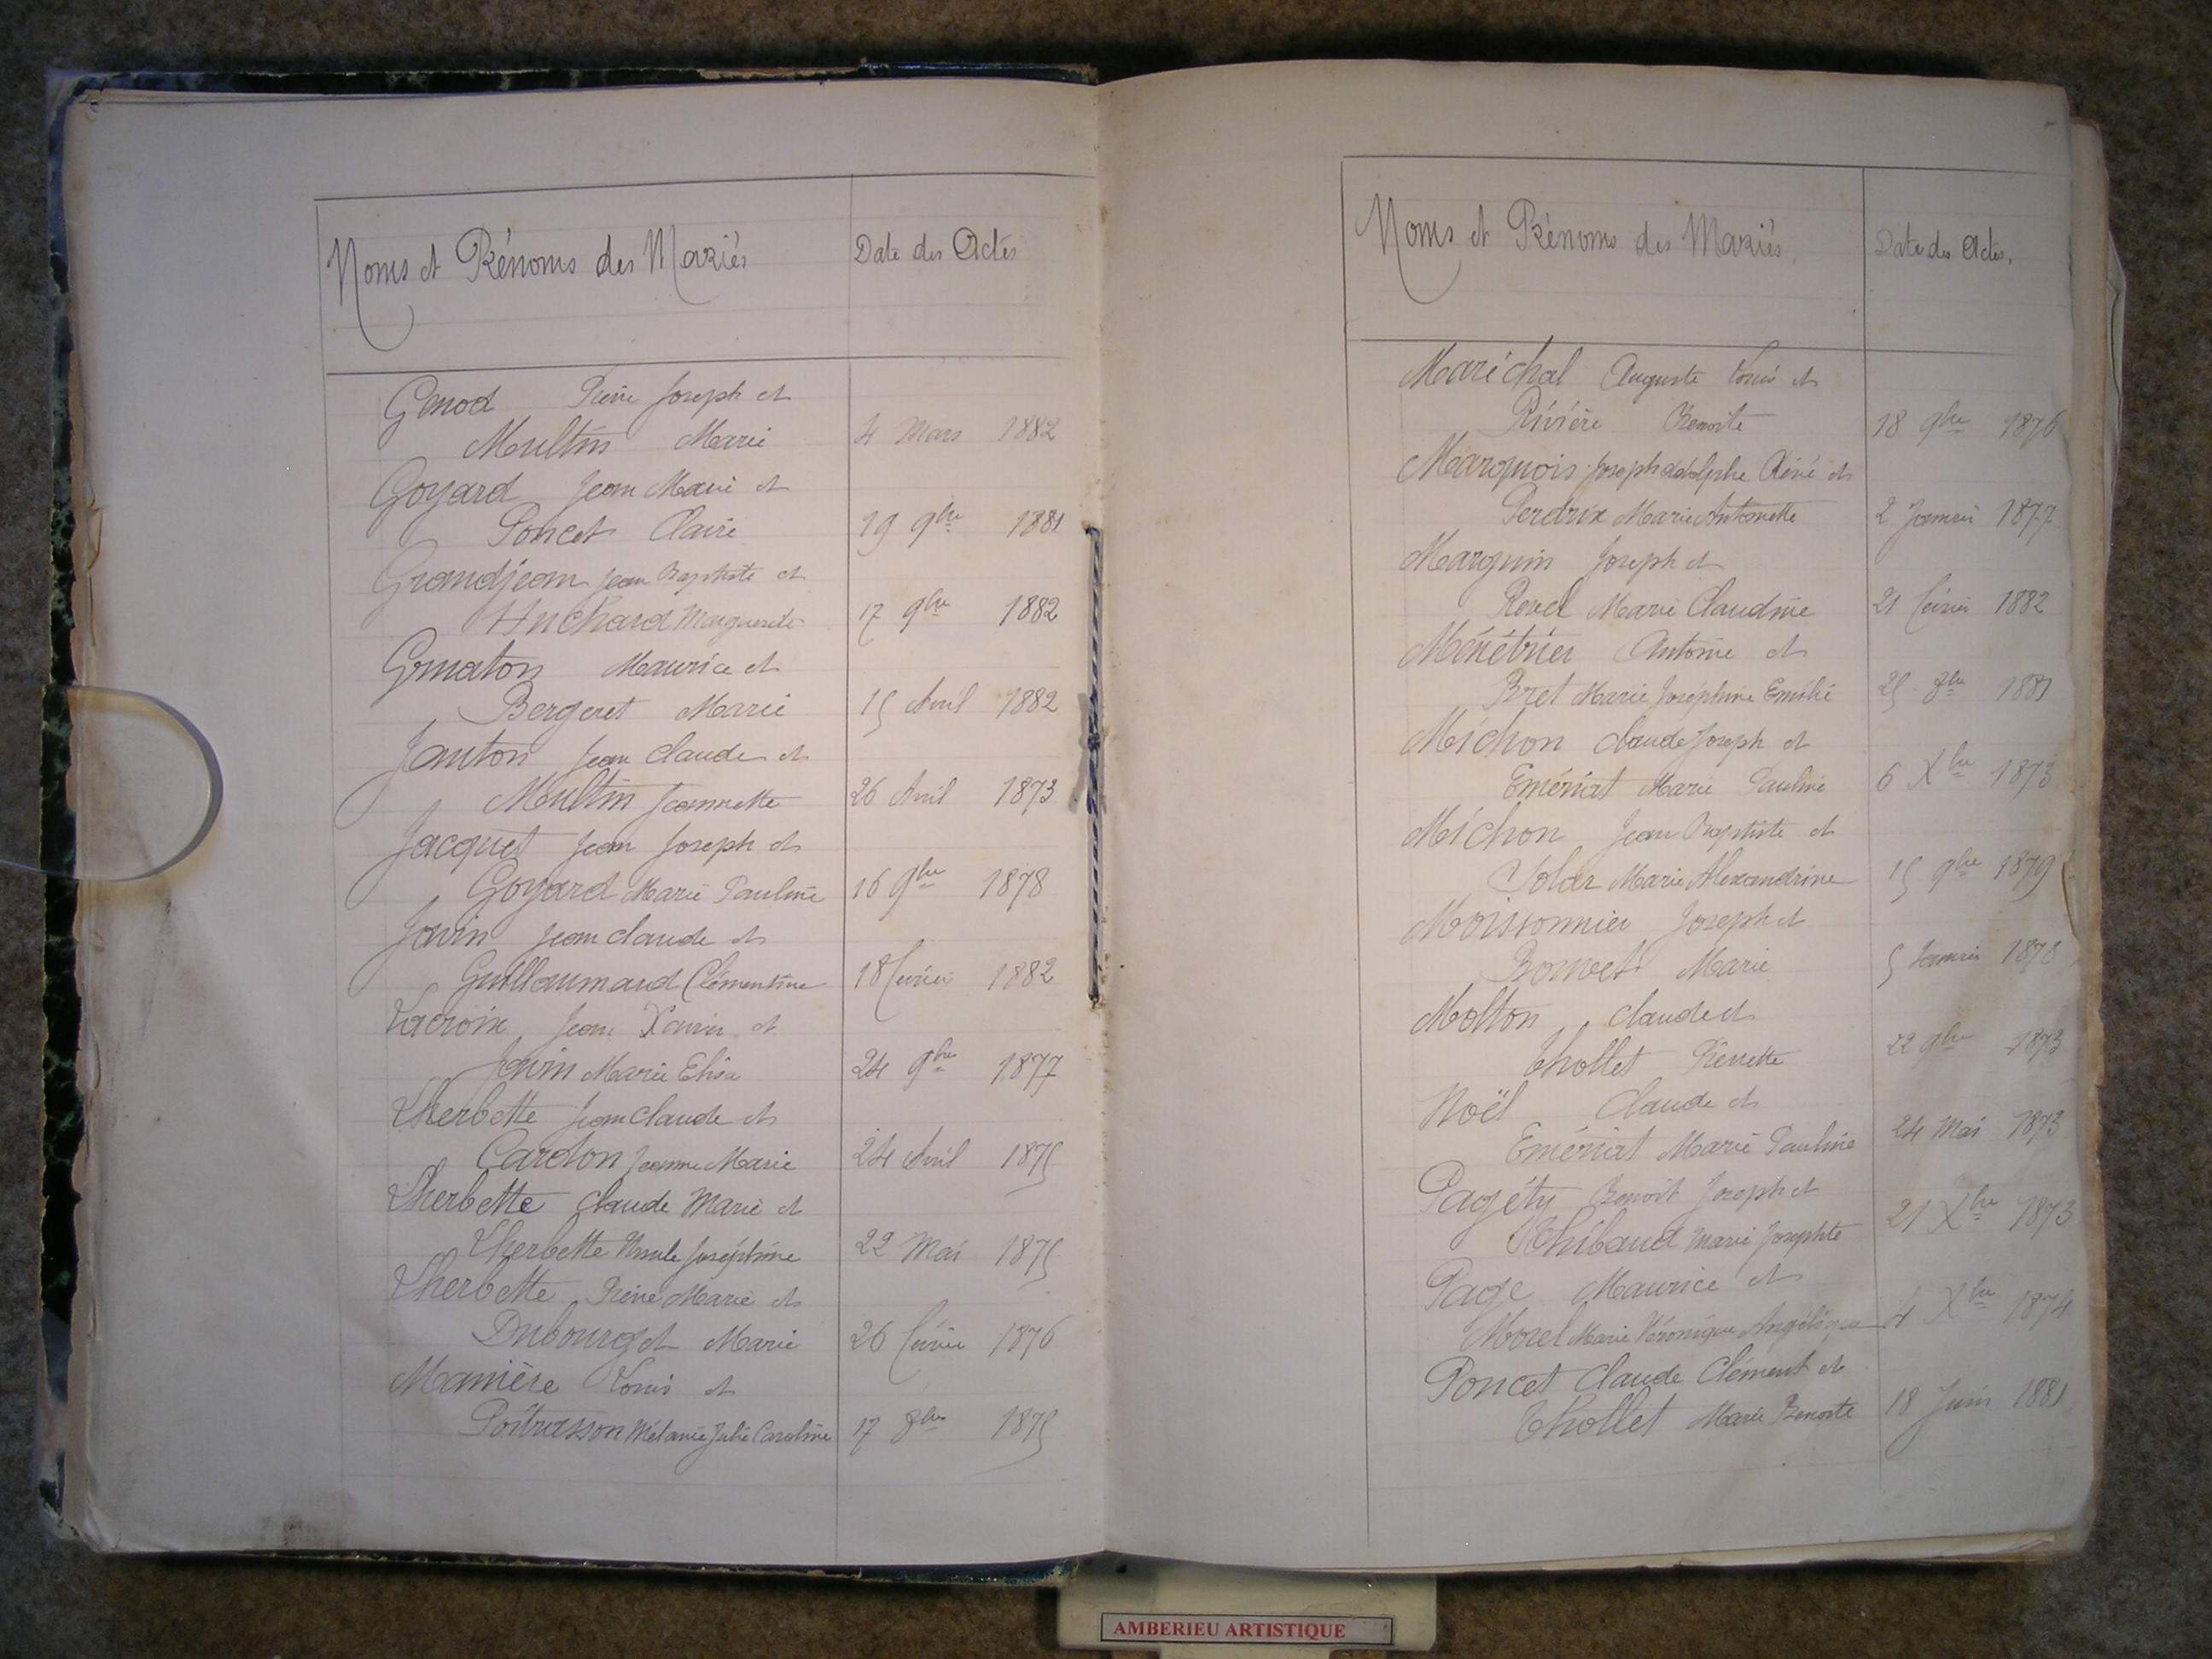 Noms et Prénoms des Mariés
Date des Actes
Genod Pierre Joseph et
Moultin Marie 4 Mars 1882
Goyard Jean Marie et
Poncet Claire 19 9bre 1881
Grandjean Jean Baptiste et
Huchard Marguerite 17 9bre 1882
Maurice et
Bergeret Marie 15 Avril 1882
Janton Jean Claude et
Moultin Jeannette 26 Avril 1873
Jacquet Jean Joseph et
Goyard Marie Pauline 16 9bre 1878
Jovin Jean Claude et
Guillaumaud Clémentine 18 février 1882
Lacroix Jean Xavier et
Jovin Marie Elisa 24 9bre 1877
Lherbette Jean Claude et
Cardon Jeanne Marie 24 Avril 1875
Lherbette Claude Marie et
Lherbette Ursule Joséphine 22 Mai 1875
Lherbette Pierre Marie et
Dubourget Marie 26 février 1876
Manière Louis et
Poitrasson Mélanie Julie Caroline 17 8bre 1875
Noms et Prénoms des Mariés
Date des Actes.
Maréchal Auguste Louis et
Rivière Benoite 18 9bre 1876
Marquois Joseph Adolphe Réné et
Perdrix Marie Antoinette 2 Janvier 1877
Marguin Joseph et
Revel Marie Claudine 21 février 1882
Ménétrier Antoine et
Bret Marie Joséphine Emélie 25 8bre 1881
Michon Claude Joseph et
Emériat Marie Pauline 6 Xbre 1873
Michon Jean Baptiste et
Jolar Marie Alexandrine 15 9bre 1879
Moissonnier Joseph et
Bonnet Marie 5 Janvier 1878
Molton Claude et
Thollet Pierrette 22 9bre 1873
Noël Claude et
Emériat Marie Pauline 24 Mai 1873
Pagéty Benoit Joseph et
Thibaud Marie Josephte 21 Xbre 1873
Page Maurice et
Morel Marie Véronique Angélique 4 Xbre 1874
Poncet Claude Clément et
Thollet Marie Benoite 18 Juin 1881
AMBERIEU ARTISTIQUE